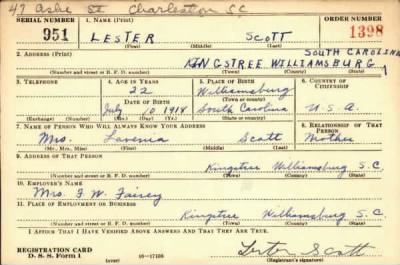 47 Ashe St Charleston S.C
SERIAL NUMBER 1. NAME (Print) ORDER NUMBER
951 LESTER SCOTT 1398
(First) (Middle) (Last)
2. ADDRESS (Print) SOUTH CAROLINA
KINGSTREE WILLIAMSBURG
(Number and street or R. F. D. number) (Town) (County) (State)
3. TELEPHONE 4. AGE IN YEARS 5. PLACE OF BIRTH 6. COUNTRY OF CITIZENSHIP
22 Williamsburg
DATE OF BIRTH (Town or county)
July 10 1918 South Carolina U.S.A.
(Exchange) (Number) (Mo.) (Day) (Yr.) (State or country)
7. NAME OF PERSON WHO WILL ALWAYS KNOW YOUR ADDRESS 8. RELATIONSHIP OF THAT PERSON
Mrs. Scott Mother
(Mr., Mrs., Miss) (First) (Middle) (Last)
9. ADDRESS OF THAT PERSON
Kingstree Williamsburg S.C
(Number and street or R. F. D. number) (Town) (County) (State)
10. EMPLOYER'S NAME
Mrs. F. W. Fairey
11. PLACE OF EMPLOYMENT OR BUSINESS
Kingstree Williamsburg S.C
(Number and street or R. F. D. number) (Town) (County) (State)
I AFFIRM THAT I HAVE VERIFIED ABOVE ANSWERS AND THAT THEY ARE TRUE.
REGISTRATION CARD
D. S. S. Form 1 16—17105 Lester Scott
(Registrant's signature)